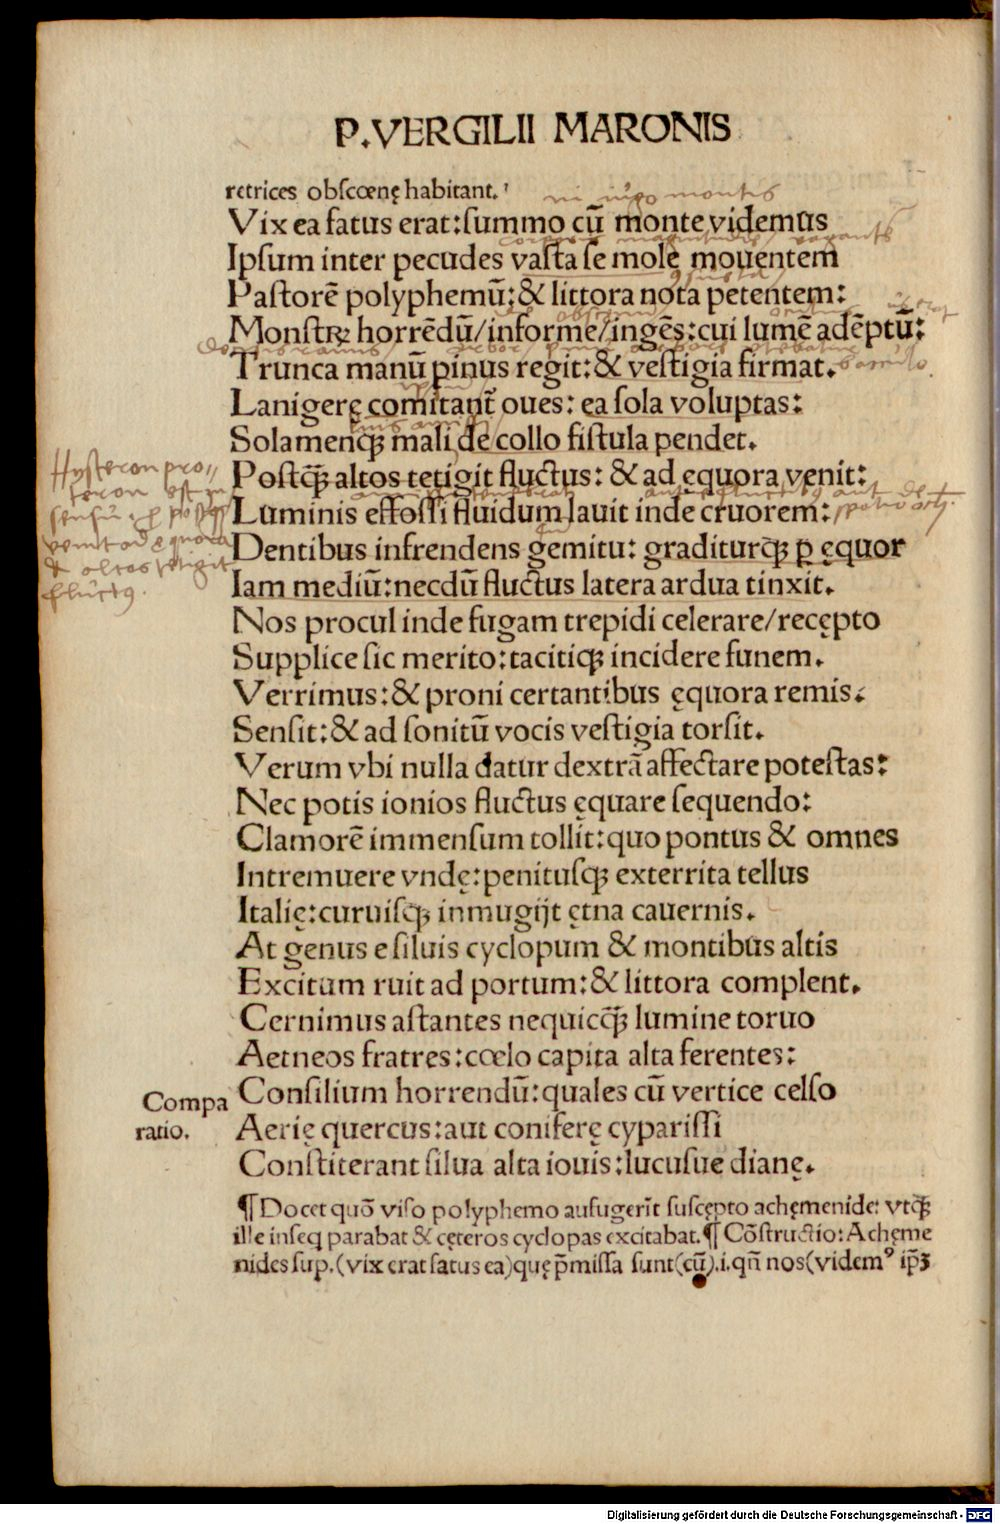 P.VERGILII MARONIS
retrices obſcœnę habitant.
in iugo montis
Vix ea fatus erat:ſummo cū monte videmus
corporis magnitudine vagantē
Ipſum inter pecudes vaſta ſe mole mouentem
Paſtorē polyphemū:& littora nota petentem:
Monſtrꝝ horrēdū/informe/ingēs:cui lumē adēptū:
Trunca manū pinus regit:& veſtigia firmat.
Lanigerę comitant̄ oues: ea ſola voluptas:
Solamenq̄ꝫ mali de collo fiſtula pendet.
Poſtq̄ꝫ altos tetigit fluctus: & ad equora venit:
Luminis effoſſi fluidum lauit inde cruorem:
Dentibus infrendens gemitu: graditurq̄ꝫ ꝑ ęquor
Iam mediū:necdū fluctus latera ardua tinxit.
Hyſteron pro//
teron eſt in
ſenſu
venit ad ęquora
& altos tetigit
fluctꝰ.
Nos procul inde fugam trepidi celerare/recępto
Supplice ſic merito:tacitiq̄ꝫ incidere funem.
Verrimus:& proni certantibus ęquora remis.
Senſit:& ad ſonitū vocis veſtigia torſit.
Verum vbi nulla datur dextrā affectare poteſtas:
Nec potis ionios fluctus ęquare ſequendo:
Clamorē immenſum tollit:quo pontus & omnes
Intremuere vndę:penituſq̄ꝫ exterrita tellus
Italię:curuiſq̄ꝫ inmugijt ętna cauernis.
At genus e ſiluis cyclopum & montibus altis
Excitum ruit ad portum:& littora complent.
Cernimus aſtantes nequicq̄ꝫ lumine toruo
Aetneos fratres:cœlo capita alta ferentes:
Conſilium horrendū:quales cū vertice celſo
Compa
ratio.
Aerię quercus:aut coniferę cypariſſi
Conſtiterant ſilua alta iouis:lucuſue dianę.
¶ Docet quō viſo polyphemo aufugerīt ſuſcępto achęmenide: vtq̄ꝫ
ille inſeq parabat & cęteros cyclopas excitabat.¶ Cōſtructio: Achęme
nides ſup.(vix erat fatus ea)quę p̄miſſa ſunt(cū).i.qn̄ nos(videmꝰ ip̄ꝫ
Digitalisierung gefördert durch die Deutsche Forschungsgemeinschaft - DFG